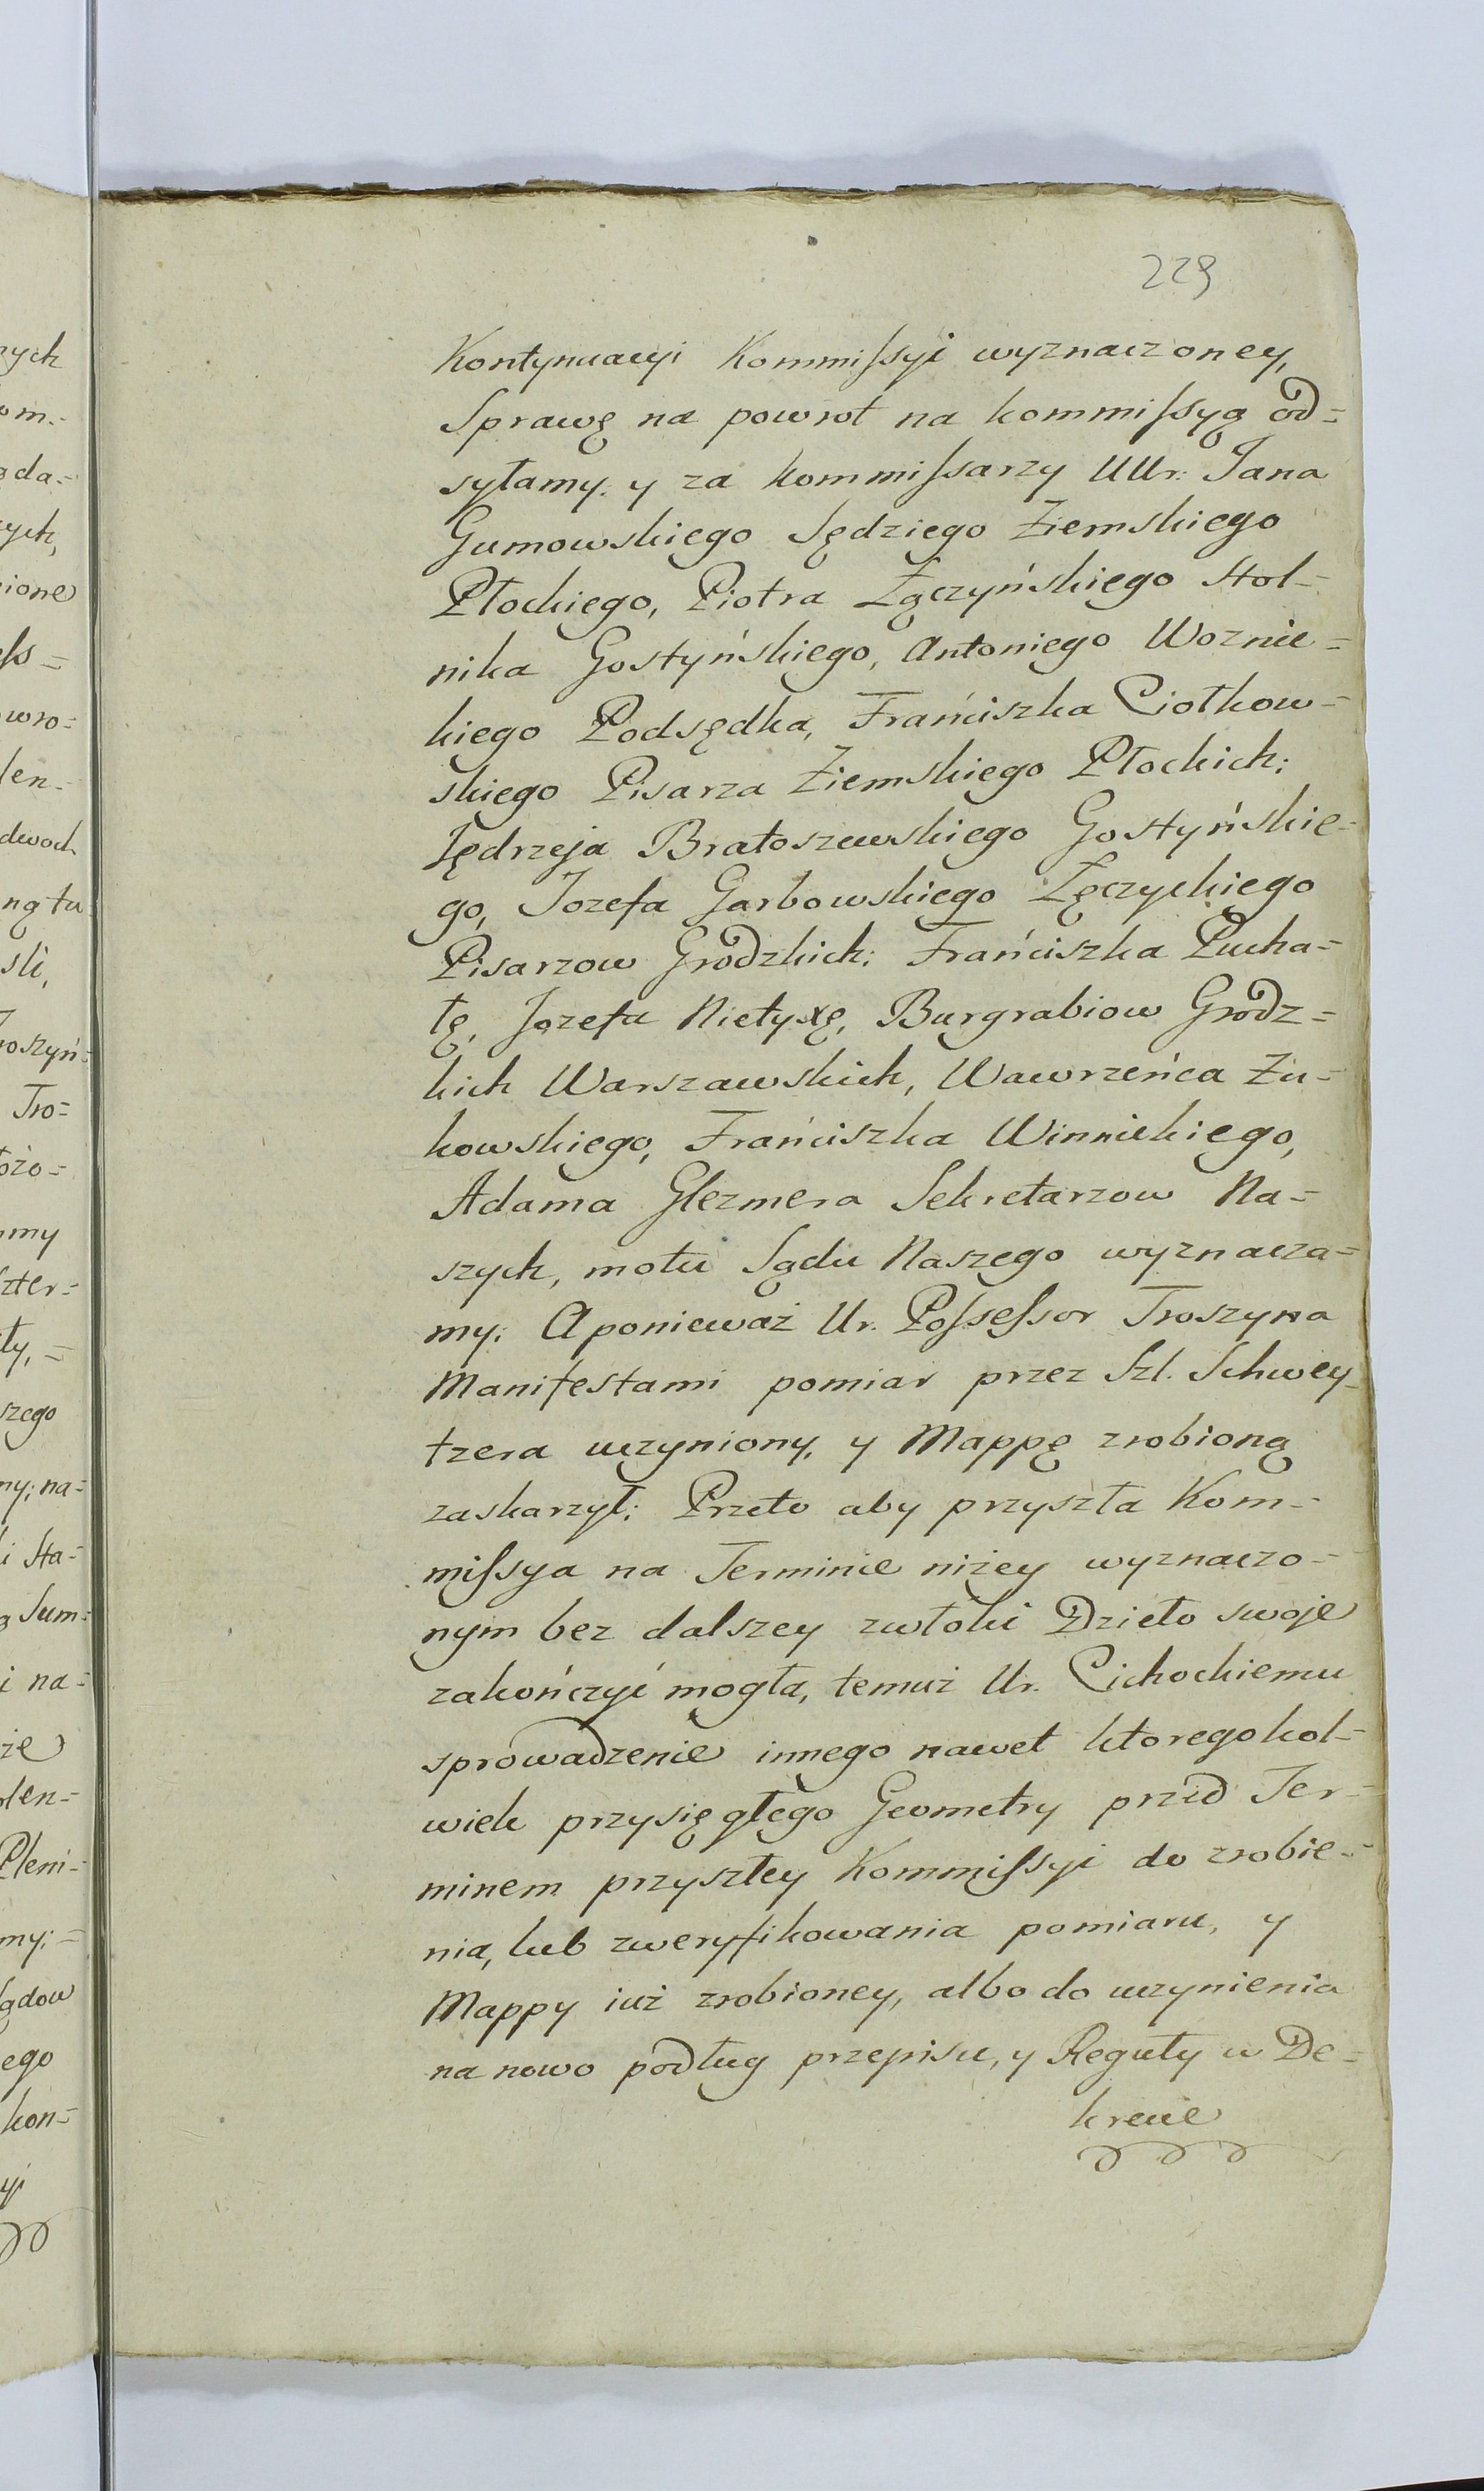 229
Kontynuacyi Kommissyi wyznaczoney,
Sprawę na powrot na kommissyą od=
syłamy. y za kommissarzy UUr: Jana
Gumowskiego Sędziego Ziemskiego
Płockiego, Piotra Łączyńskiego Stol=
nika Gostyńskiego, Antoniego Woznic=
kiego Podsędka, Franciszka Ciołkow=
skiego Pisarza Ziemskiego Płockich;
Jędrzeja Bratoszewskiego Gostyńskie=
go, Jozefa Garbowskiego Łęczyckiego
Pisarzow Grodzkich; Franciszka Pucha=
łę, Jozefa Nietyxę, Burgrabiow Grodz=
kich Warszawskich, Wawrzeńca Zu=
kowskiego, Franciszka Winnickiego,
Adama Glezmera Sekretarzow Na=
szych, motu Sądu Naszego wyznacza=
my; A ponieważ Ur. Possessor Troszyna
Manifestami pomiar przez Szl. Schwey=
tzera uczyniony, y Mappę zrobioną
zaskarzył; Przeto aby przyszła Kom=
missya na Terminie niżey wyznaczo=
nym bez dalszey zwłoki Dzieło swoje
zakończyć mogła, temuż Ur. Cichockiemu
sprowadzenie innego nawet ktoregokol=
wiek przysięgłego Geometry przed Ter=
minem przyszłey Kommissyi do zrobie=
nia, lub zweryfikowania pomiaru, y
Mappy iuż zrobioney, albo do uczynienia
na nowo podług przepisu, y Reguły w De=
krecie